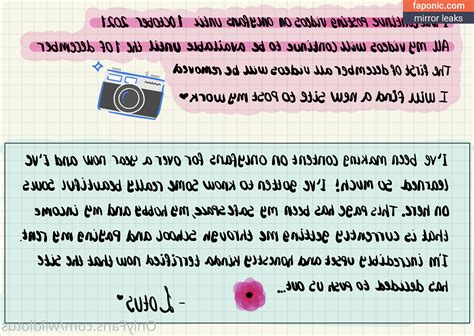 faponic.com
mirror leaks
I will continue posting videos on onlyfans until 1 October 2021
All my videos will continue to be available until the 1 of december
The first of december all videos will be removed
I will find a new site to post my work
I've been making content on onlyfans for over a year now and I've
learned so much! I've gotten to know some really beautiful souls
on here. This page has been my safe space, my hobby and my income
that is currently getting me through school and paying my rent
I'm incredibly upset and honestly kinda terrified now that the site
has decided to push us out...
-Lotus
OnlyFans.com/wildlotus